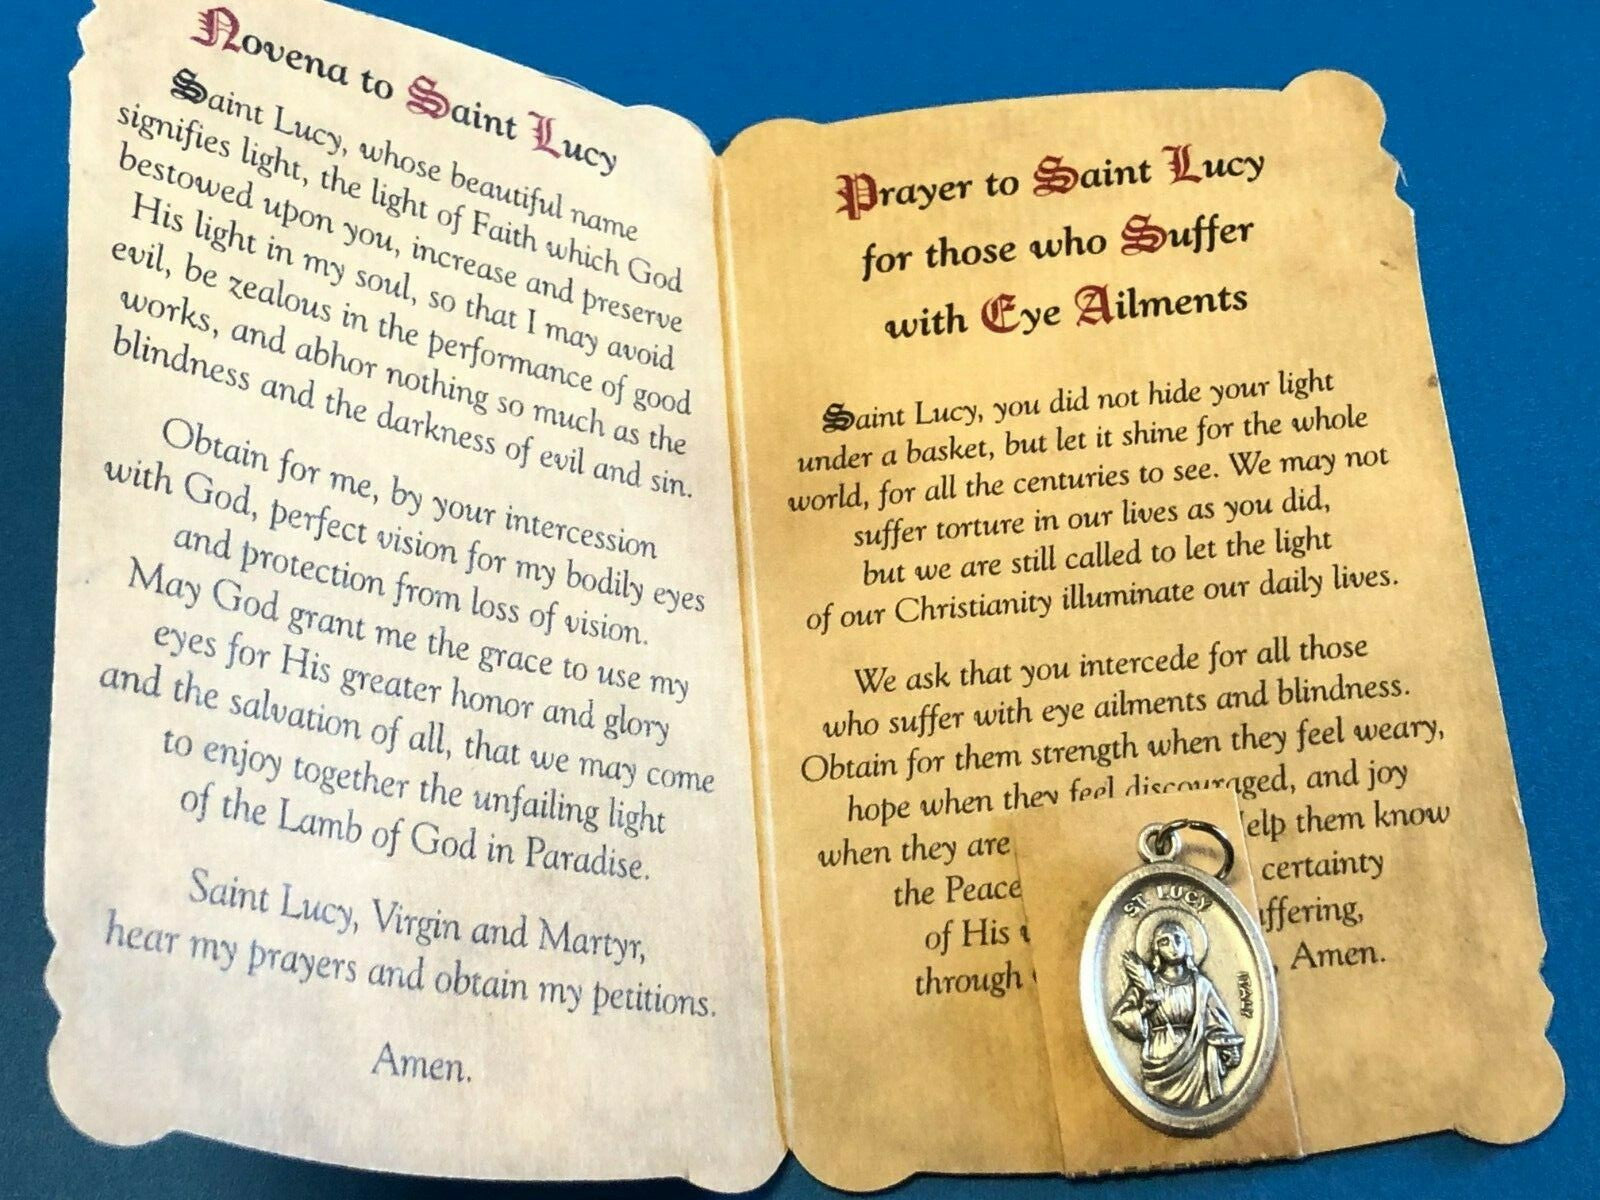 Novena to Saint Lucy
Saint Lucy, whose beautiful name
signifies light, the light of Faith which God
bestowed upon you, increase and preserve
His light in my soul, so that I may avoid
evil, be zealous in the performance of good
works, and abhor nothing so much as the
blindness and the darkness of evil and sin.
Obtain for me, by your intercession
with God, perfect vision for my bodily eyes
and protection from loss of vision.
May God grant me the grace to use my
eyes for His greater honor and glory
and the salvation of all, that we may come
to enjoy together the unfailing light
of the Lamb of God in Paradise.
Saint Lucy, Virgin and Martyr,
hear my prayers and obtain my petitions.
Amen.
Prayer to Saint Lucy
for those who Suffer
with Eye Ailments
Saint Lucy, you did not hide your light
under a basket, but let it shine for the whole
world, for all the centuries to see. We may not
suffer torture in our lives as you did,
but we are still called to let the light
of our Christianity illuminate our daily lives.
We ask that you intercede for all those
who suffer with eye ailments and blindness.
Obtain for them strength when they feel weary,
hope when they feel discouraged, and joy
when they are elp them know
the Peace certainty
of His ffering,
through , Amen.
ST LUCY